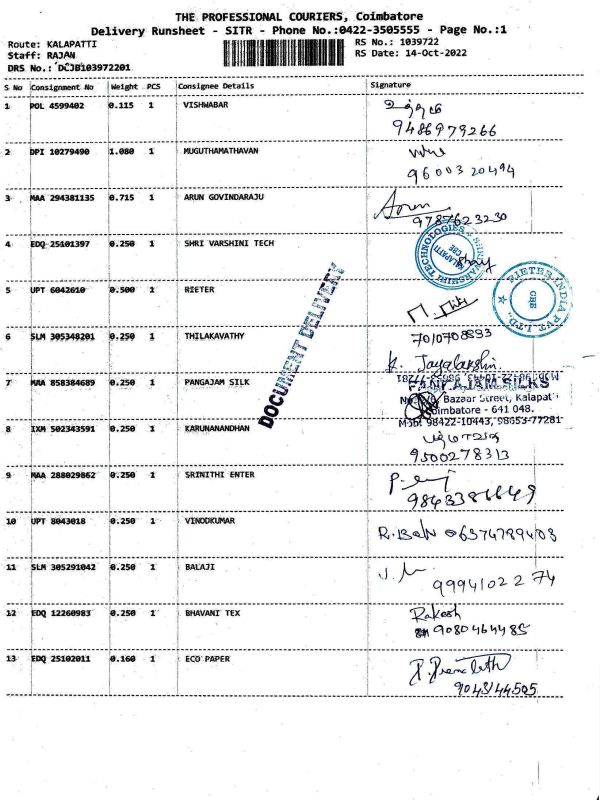 THE PROFESSIONAL COURIERS, Coimbatore
Delivery Runsheet - SITR - Phone No.:0422-3505555 - Page No.:1
Route: KALAPATTI
Staff: RAJAN
DRS No.: DCJB103972201
RS No.: 1039722
RS Date: 14-Oct-2022
S No Consignment No Weight PCS Consignee Details Signature
1 POL 4599402 0.115 1 VISHWABAR
9486979266
2 DPI 10279490 1.080 1 MUGUTHAMATHAVAN
9600320494
3 MAA 294381135 0.715 1 ARUN GOVINDARAJU Arun
9787623230
4 EDQ 25101397 0.250 1 SHRI VARSHINI TECH
5 UPT 6042610 0.500 1 RIETER
RIETER INDIA PVT. LTD.
CBE
DOCUMENT DELIVERY
6 SLM 305348201 0.250 1 THILAKAVATHY
7010708893
K. Jayalakshmi
7 MAA 858384689 0.250 1 PANGAJAM SILK
PANKAJAM SILKS
Bazaar Street, Kalapatti
Coimbatore - 641 048.
Mob: 98422-10443, 98653-77281
8 IXM 502343591 0.250 1 KARUNANANDHAN
9500278313
9 MAA 288029862 0.250 1 SRINITHI ENTER
10 UPT 8043018 0.250 1 VINODKUMAR
11 SLM 305291042 0.250 1 BALAJI
9994102274
12 EDQ 12260983 0.250 1 BHAVANI TEX Rakesh
9080464485
13 EDQ 25102011 0.160 1 ECO PAPER
9043144505